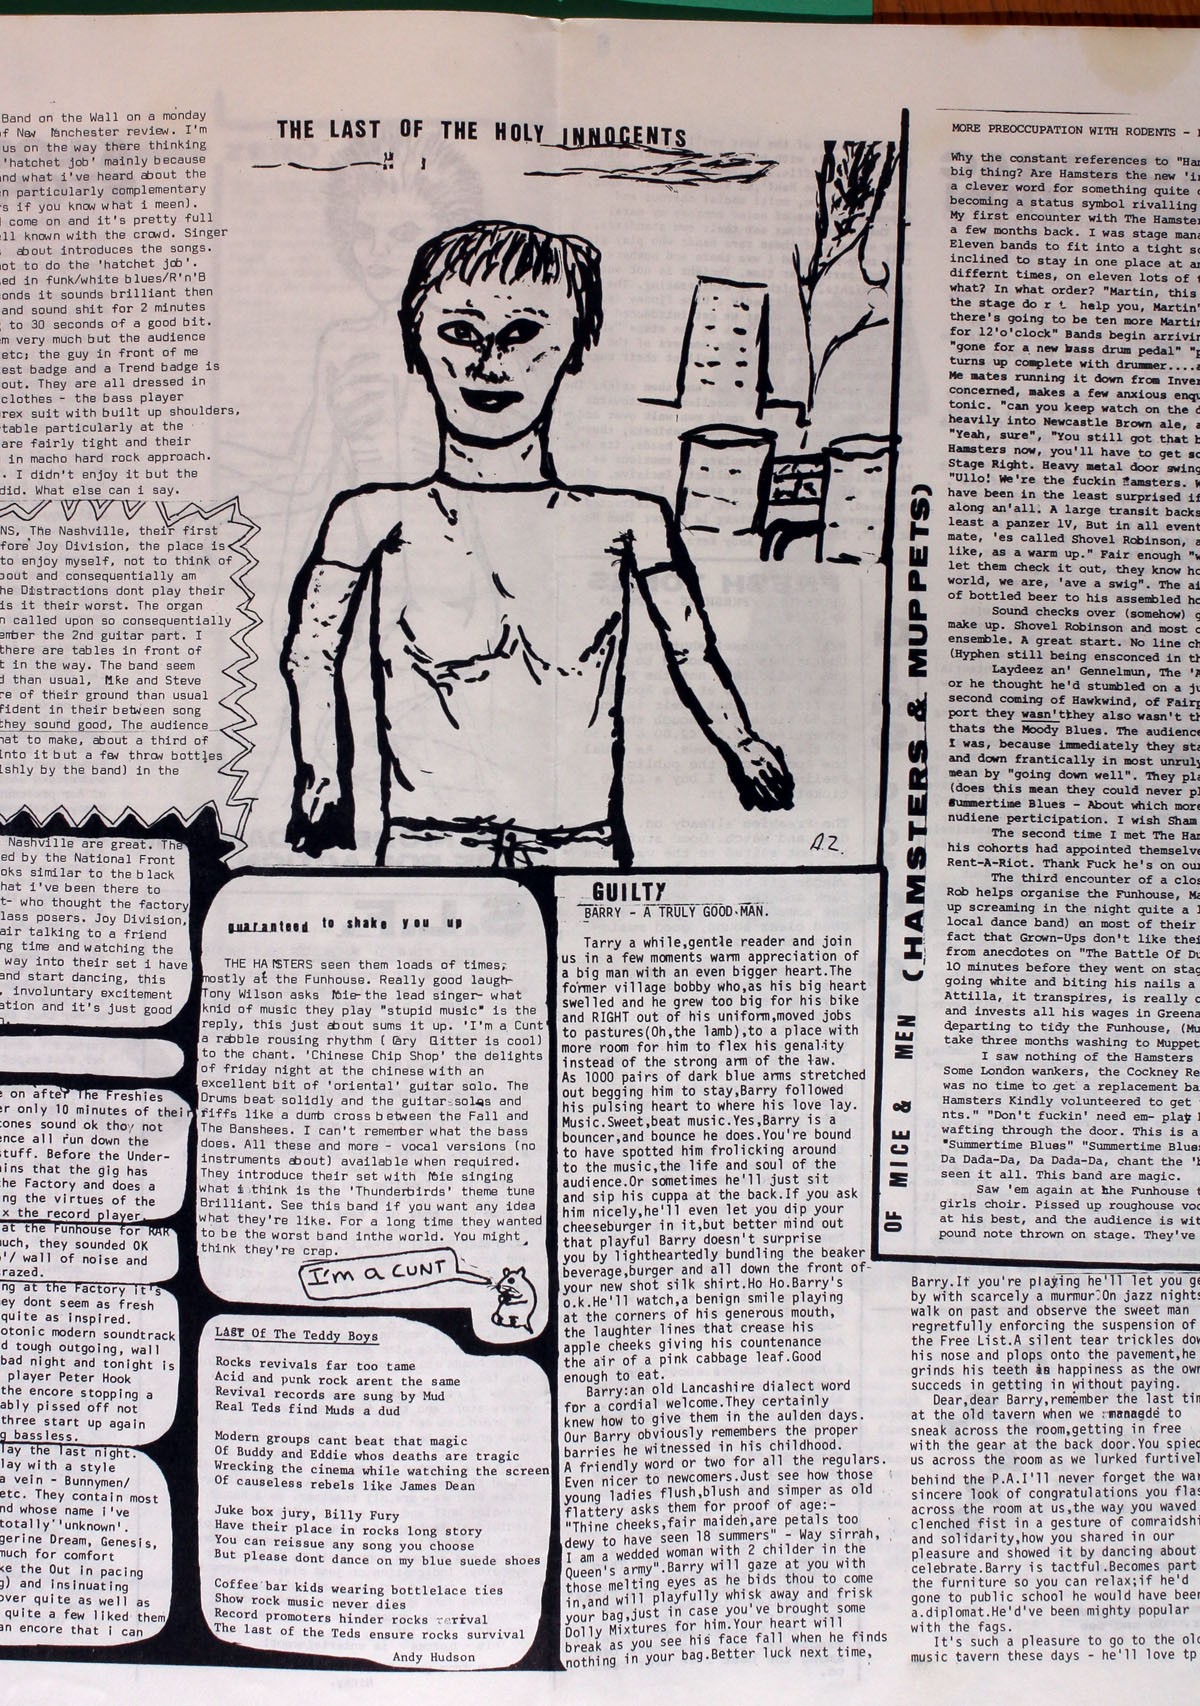 Band on the Wall on a monday
of New Manchester review. I'm
us on the way there thinking
'hatchet job' mainly because
and what i've heard about the
particularly complementary
s if you know what i meen).
come on and it's pretty full
ll known with the crowd. Singer
about introduces the songs.
not to do the 'hatchet job'.
sed in funk/white blues/R'n'B
onds it sounds brilliant then
and sound shit for 2 minutes
to 30 seconds of a good bit.
em very much but the audience
etc; the guy in front of me
est badge and a Trend badge is
out. They are all dressed in
clothes - the bass player
rex suit with built up shoulders,
table particularly at the
are fairly tight and their
in macho hard rock approach.
. I didn't enjoy it but the
did. What else can i say.
NS, The Nashville, their first
fore Joy Division, the place is
to enjoy myself, not to think of
bout and consequentially am
he Distractions dont play their
is it their worst. The organ
n called upon so consequentially
ember the 2nd guitar part. I
there are tables in front of
t in the way. The band seem
d than usual, Mike and Steve
re of their ground than usual
fident in their between song
they sound good. The audience
hat to make, about a third of
into it but a few throw bottles
lshly by the band) in the
Nashville are great. The
ed by the National Front
oks similar to the black
hat i've been there to
t- who thought the factory
lass posers. Joy Division,
air talking to a friend
ng time and watching the
way into their set i have
and start dancing, this
, involuntary excitement
ation and it's just good
e on after The Freshies
er only 10 minutes of their
tones sound ok thoy not
ence all run down the
stuff. Before the Under-
ins that the gig has
he Factory and does a
ng the virtues of the
x the record player.
at the Funhouse for RAR
much, they sounded OK
'/ wall of noise and
razed.
ng at the Factory it's
ey dont seem as fresh
quite as inspired.
otonic modern soundtrack
d tough outgoing, wall
bad night and tonight is
player Peter Hook
the encore stopping a
ably pissed off not
three start up again
g bassless.
lay the last night.
lay with a style
a vein - Bunnymen/
etc. They contain most
nd whose name i've
totally 'unknown'.
gerine Dream, Genesis,
much for comfort
ke the Out in pacing
g) and insinuating
over quite as well as
quite a few liked them
an encore that i can
THE LAST OF THE HOLY INNOCENTS
A.Z.
guaranteed to shake you up
THE HAMSTERS seen them loads of times,
mostly at the Funhouse. Really good laugh-
Tony Wilson asks Moie-the lead singer- what
knid of music they play "stupid music" is the
reply, this just about sums it up. 'I'm a Cunt'
a rabble rousing rhythm ( Gary Glitter is cool)
to the chant. 'Chinese Chip Shop' the delights
of friday night at the chinese with an
excellent bit of 'oriental' guitar solo. The
Drums beat solidly and the guitar solos and
riffs like a dumb cross between the Fall and
The Banshees. I can't remember what the bass
does. All these and more - vocal versions (no
instruments about) available when required.
They introduce their set with Moie singing
what i think is the 'Thunderbirds' theme tune
Brilliant. See this band if you want any idea
what they're like. For a long time they wanted
to be the worst band inthe world. You might
think they're crap.
I'm a CUNT
LAST Of The Teddy Boys
Rocks revivals far too tame
Acid and punk rock arent the same
Revival records are sung by Mud
Real Teds find Muds a dud
Modern groups cant beat that magic
Of Buddy and Eddie whos deaths are tragic
Wrecking the cinema while watching the screen
Of causeless rebels like James Dean
Juke box jury, Billy Fury
Have their place in rocks long story
You can reissue any song you choose
But please dont dance on my blue suede shoes
Coffee bar kids wearing bottlelace ties
Show rock music never dies
Record promoters hinder rocks revival
The last of the Teds ensure rocks survival
Andy Hudson
GUILTY
BARRY - A TRULY GOOD MAN.
Tarry a while,gentle reader and join
us in a few moments warm appreciation of
a big man with an even bigger heart.The
former village bobby who,as his big heart
swelled and he grew too big for his bike
and RIGHT out of his uniform,moved jobs
to pastures(Oh,the lamb),to a place with
more room for him to flex his genality
instead of the strong arm of the law.
As 1000 pairs of dark blue arms stretched
out begging him to stay,Barry followed
his pulsing heart to where his love lay.
Music.Sweet,beat music.Yes,Barry is a
bouncer,and bounce he does.You're bound
to have spotted him frolicking around
to the music,the life and soul of the
audience.Or sometimes he'll just sit
and sip his cuppa at the back.If you ask
him nicely,he'll even let you dip your
cheeseburger in it,but better mind out
that playful Barry doesn't surprise
you by lightheartedly bundling the beaker
beverage,burger and all down the front of
your new shot silk shirt.Ho Ho.Barry's
o.k.He'll watch,a benign smile playing
at the corners of his generous mouth,
the laughter lines that crease his
apple cheeks giving his countenance
the air of a pink cabbage leaf.Good
enough to eat.
Barry:an old Lancashire dialect word
for a cordial welcome.They certainly
knew how to give them in the aulden days.
Our Barry obviously remembers the proper
barries he witnessed in his childhood.
A friendly word or two for all the regulars.
Even nicer to newcomers.Just see how those
young ladies flush,blush and simper as old
flattery asks them for proof of age:-
"Thine cheeks,fair maiden,are petals too
dewy to have seen 18 summers" - Way sirrah,
I am a wedded woman with 2 childer in the
Queen's army".Barry will gaze at you with
those melting eyes as he bids thou to come
in,and will playfully whisk away and frisk
your bag,just in case you've brought some
Dolly Mixtures for him.Your heart will
break as you see his face fall when he finds
nothing in your bag.Better luck next time,
OF MICE & MEN (HAMSTERS & MUPPETS)
MORE PREOCCUPATION WITH RODENTS -
Why the constant references to "Ham
big thing? Are Hamsters the new 'in
a clever word for something quite
becoming a status symbol rivalling
My first encounter with The Hamster
a few months back. I was stage mana
Eleven bands to fit into a tight sc
inclined to stay in one place at an
differnt times, on eleven lots of
what? In what order? "Martin, this
the stage do r t help you, Martin"
there's going to be ten more Martin
for 12'o'clock" Bands begin arrivin
"gone for a new bass drum pedal"
turns up complete with drummer....a
Me mates running it down from Inver
concerned, makes a few anxious enqu
tonic. "can you keep watch on the d
heavily into Newcastle Brown ale, a
"Yeah, sure", "You still got that b
Hamsters now, you'll have to get so
Stage Right. Heavy metal door swing
"Ullo! We're the fuckin Hamsters. W
have been in the least surprised if
along an'all. A large transit backs
least a panzer lV, But in all event
mate, 'es called Shovel Robinson, a
like, as a warm up." Fair enough "w
let them check it out, they know ho
world, we are, 'ave a swig". The ai
of bottled beer to his assembled ho
Sound checks over (somehow) g
make up. Shovel Robinson and most o
ensemble. A great start. No line ch
(Hyphen still being ensconced in th
Laydeez an' Gennelmun, The 'A
or he thought he'd stumbled on a ju
second coming of Hawkwind, of Fairp
port they wasn'tthey also wasn't th
thats the Moody Blues. The audience
I was, because immediately they sta
and down frantically in most unruly
mean by "going down well". They pla
(does this mean they could never pl
Summertime Blues - About which more
nudiene perticipation. I wish Sham
The second time I met The Ham
his cohorts had appointed themselve
Rent-A-Riot. Thank Fuck he's on our
The third encounter of a clos
Rob helps organise the Funhouse, Ma
up screaming in the night quite a l
local dance band) on most of their
fact that Grown-Ups don't like thei
from anecdotes on "The Battle Of Du
10 minutes before they went on stag
going white and biting his nails a
Attilla, it transpires, is really
and invests all his wages in Greena
departing to tidy the Funhouse, (Mu
take three months washing to Muppet
I saw nothing of the Hamsters
Some London wankers, the Cockney Re
was no time to get a replacement ba
Hamsters Kindly volunteered to get
nts." "Don't fuckin' need em- play
wafting through the door. This is a
"Summertime Blues" "Summertime Blue
Da Dada-Da, Da Dada-Da, chant the
seen it all. This band are magic.
Saw 'em again at the Funhouse
girls choir. Pissed up roughouse voc
at his best, and the audience is wi
pound note thrown on stage. They've
Barry.If you're playing he'll let you go
by with scarcely a murmur.On jazz nights
walk on past and observe the sweet man
regretfully enforcing the suspension of
the Free List.A silent tear trickles dow
his nose and plops onto the pavement,he
grinds his teeth in happiness as the own
succeds in getting in without paying.
Dear,dear Barry,remember the last tim
at the old tavern when we managde to
sneak across the room,getting in free
with the gear at the back door.You spied
us across the room as we lurked furtivel
behind the P.A.I'll never forget the war
sincere look of congratulations you flas
across the room at us,the way you waved
clenched fist in a gesture of comraidshi
and solidarity,how you shared in our
pleasure and showed it by dancing about
celebrate.Barry is tactful.Becomes part
the furniture so you can relax;if he'd
gone to public school he would have been
a.diplomat.He'd've been mighty popular
with the fags.
It's such a pleasure to go to the old
music tavern these days - he'll love tp